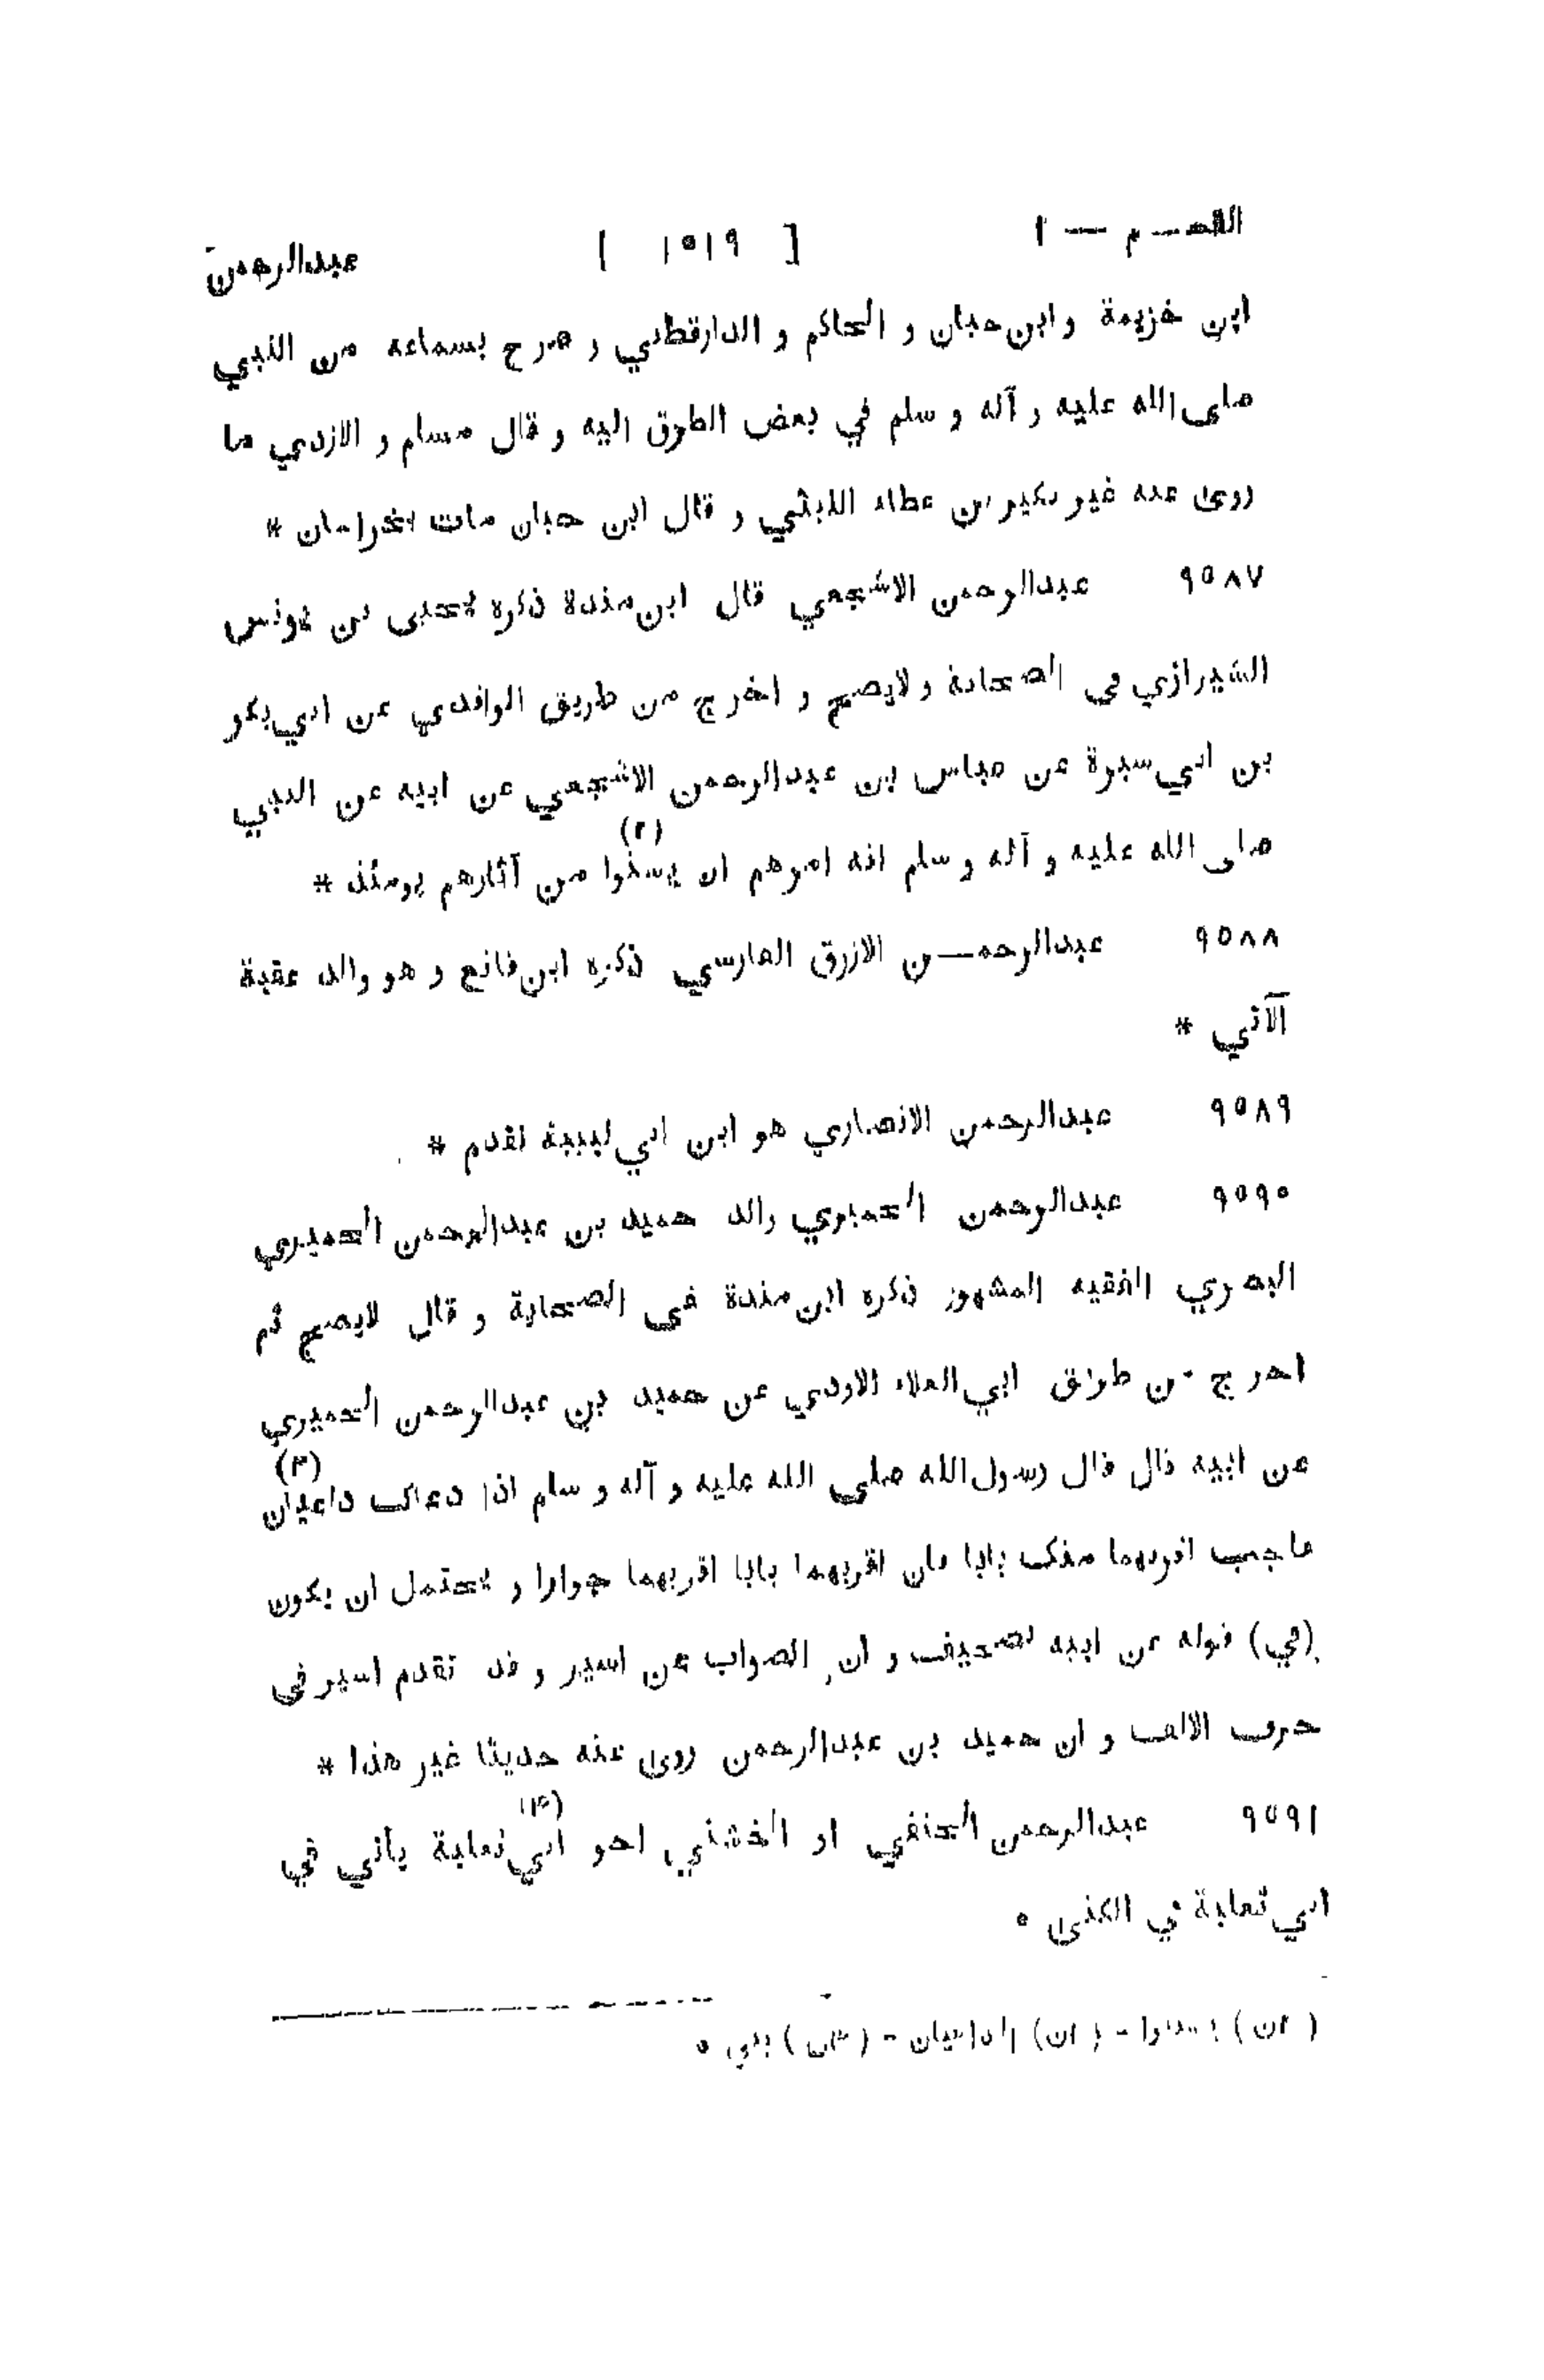 القسم — ١ [ ١٥١٩ ] عبدالرحمن
ابن خزيمة و ابن حبان و الحاكم و الدارقطني و صرح بسماعه من النبي
صلى الله عليه و آله و سلم في بعض الطرق اليه و قال مسلم و الازدي ما
روى عنه غير بكير بن عطاء الليثي و قال ابن حبان مات بخراسان *
٩٥٨٧ عبدالرحمن الاشجعي قال ابن مندة ذكره يحيى بن يونس
الشيرازي في الصحابة و لايصح و اخرج من طريق الواقدي عن ابي بكر
بن ابي سبرة عن عباس بن عبدالرحمن الاشجعي عن ابيه عن النبي
صلى الله عليه و آله و سلم انه امرهم ان (٢) من آثارهم يومئذ *
٩٥٨٨ عبدالرحمـــن الازرق الفارسي ذكره ابن قانع و هو والد عقبة
الآتي *
٩٥٨٩ عبدالرحمن الانصاري هو ابن ابي لبيبة تقدم *
٩٥٩٠ عبدالرحمن الحميري والد حميد بن عبدالرحمن الحميري
البصري الفقيه المشهور ذكره ابن مندة في الصحابة و قال لايصح ثم
اخرج من طريق ابي العلاء الاودي عن حميد بن عبدالرحمن الحميري
عن ابيه قال قال رسول الله صلى الله عليه و آله و سلم اذا دعاك داعيان (٣)
فاجب اقربهما منك بابا فان اقربهما بابا اقربهما جوارا و يحتمل ان يكون
(في) قوله عن ابيه تصحيف و ان الصواب عن اسير و قد تقدم اسير في
حرف الالف و ان حميد بن عبدالرحمن روى عنه حديثا غير هذا *
٩٥٩١ عبدالرحمن الحنفي او الخشني اخو ابي (٤) ثعلبة يأتي في
ابي ثعلبة في الكنى ٥
( ٢ن ) - ( ٢ن ) الداعيان - ( ٤ن ) بني ٥